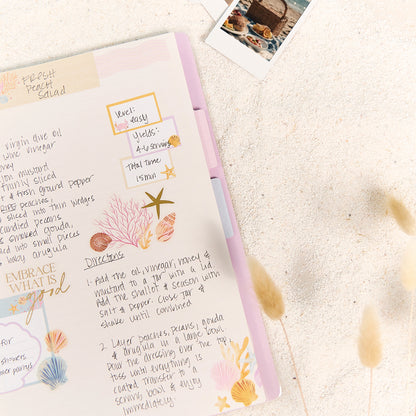 FRESH
PEACH
Salad
virgin olive oil
wine vinegar
mustard
thinly sliced
& fresh ground pepper
peaches,
sliced into thin wedges
candied pecans
smoked gouda,
into small pieces
baby arugula
EMBRACE
WHAT IS
good
for:
showers
level:
easy
Yields:
4-6 servings
Total Time:
15 min
Directions
1. Add the oil, vinegar, honey &
mustard to a jar with a lid
Add the shallot & season with
salt & pepper. Close jar &
shake until combined
2. Layer peaches, pecans, gouda
& arugula in a large bowl.
Pour the dressing over the top
toss until everything is
coated. Transfer to a
serving bowl & enjoy
immediately.